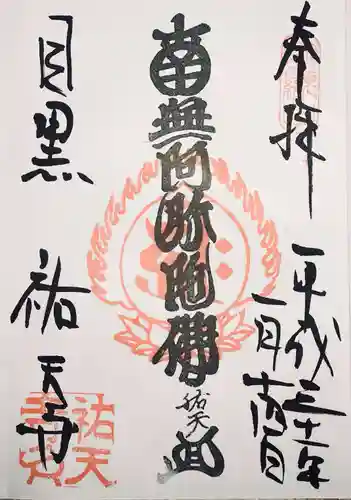 奉拝
平成三十一年
一月
南無阿弥陀佛
祐天
目黒 祐天寺
祐天